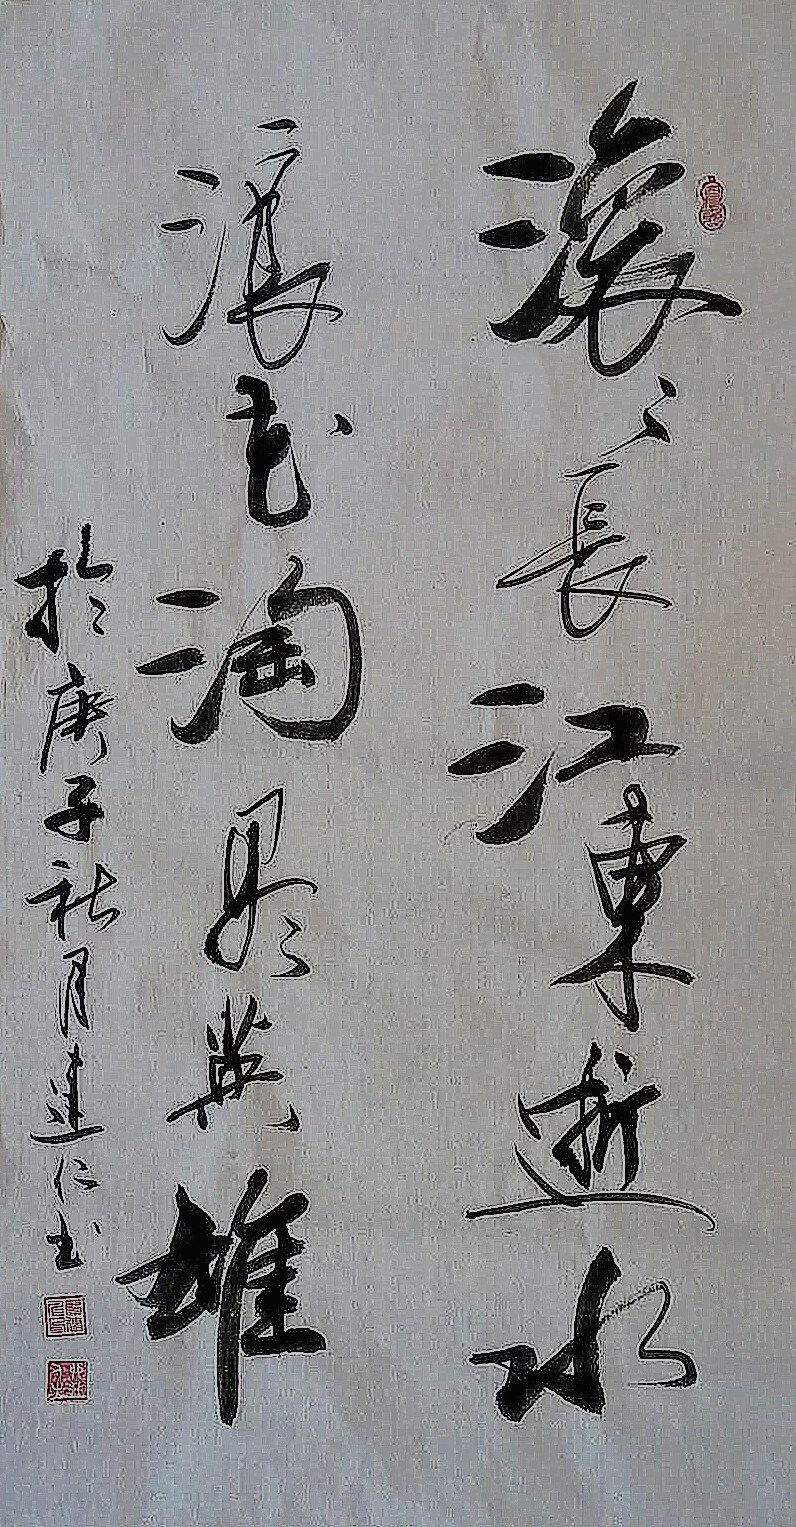 滚〻長江東逝水
浪花淘尽英雄
於庚子秋月建仁书